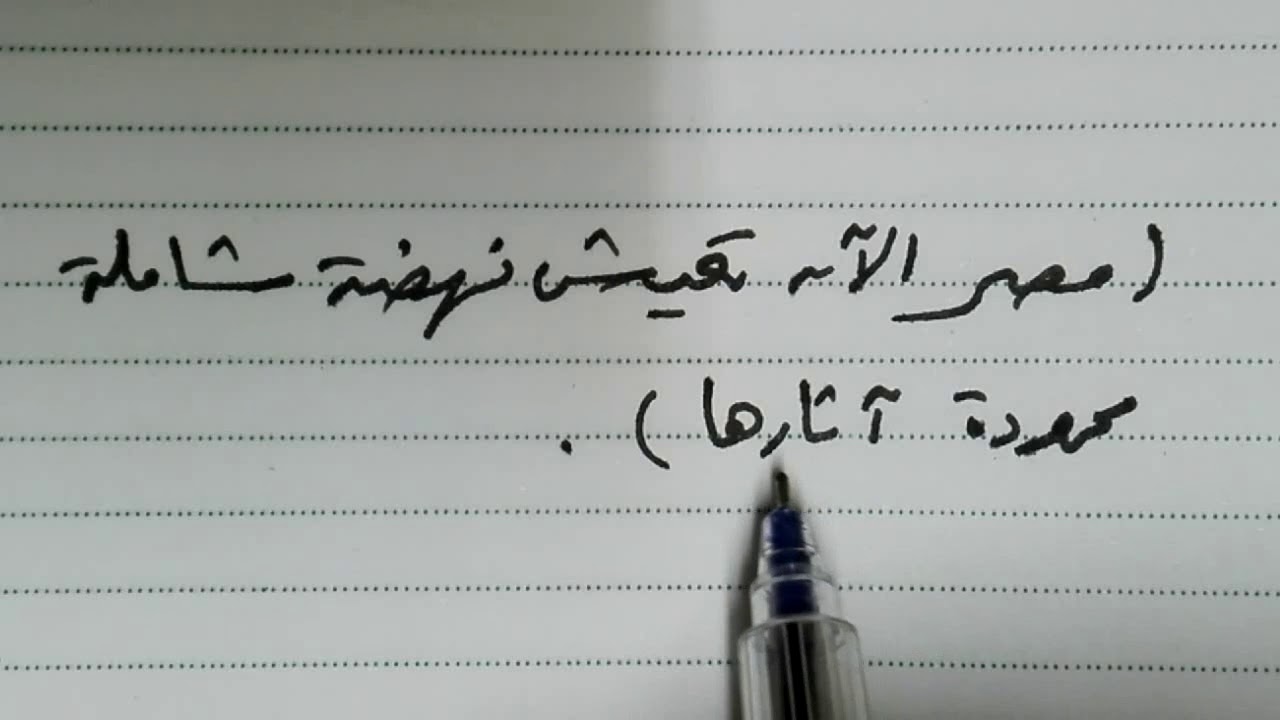 (مصر الآن تعيش نهضة شاملة
محمودة آثارها) .